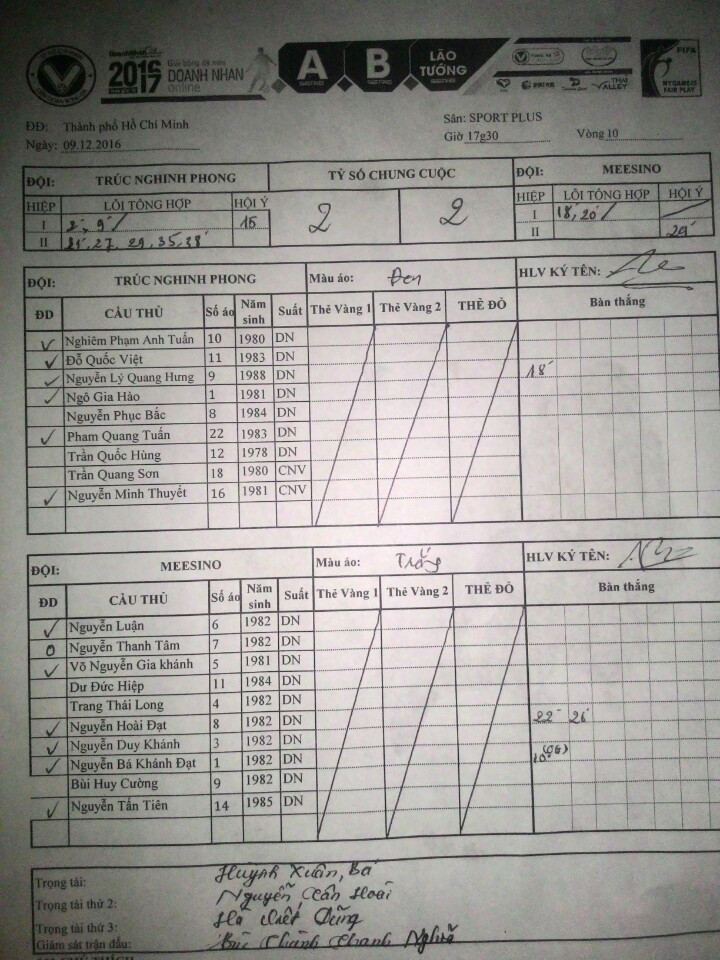 DoanhNhan
2016
2017
Giải bóng đá mini
DOANH NHÂN
online
A
B
LÃO
TƯỚNG
THAI
VALLEY
FIFA
MY GAME IS
FAIR PLAY
ĐĐ: Thành phố Hồ Chí Minh
Sân: SPORT PLUS
Ngày: 09.12.2016
Giờ 17g30
Vòng 10
ĐỘI: TRÚC NGHINH PHONG TỶ SỐ CHUNG CUỘC ĐỘI: MEESINO
HIỆP LỖI TỔNG HỢP HỘI Ý 2 2 HIỆP LỖI TỔNG HỢP HỘI Ý
I 2', 9' 15 I 18', 20'
II 27, 29, 35, 38' II 29'
ĐỘI: TRÚC NGHINH PHONG Màu áo: Đen HLV KÝ TÊN:
ĐD CẦU THỦ Số áo Năm sinh Suất Thẻ Vàng 1 Thẻ Vàng 2 THẺ ĐỎ Bàn thắng
✓ Nghiêm Phạm Anh Tuấn 10 1980 DN
✓ Đỗ Quốc Việt 11 1983 DN
✓ Nguyễn Lý Quang Hưng 9 1988 DN 18'
✓ Ngô Gia Hào 1 1981 DN
Nguyễn Phục Bắc 8 1984 DN
✓ Pham Quang Tuấn 22 1983 DN
Trần Quốc Hùng 12 1978 DN
Trần Quang Sơn 18 1980 CNV
✓ Nguyễn Minh Thuyết 16 1981 CNV
ĐỘI: MEESINO Màu áo: Trắng HLV KÝ TÊN:
ĐD CẦU THỦ Số áo Năm sinh Suất Thẻ Vàng 1 Thẻ Vàng 2 THẺ ĐỎ Bàn thắng
✓ Nguyễn Luận 6 1982 DN
0 Nguyễn Thanh Tâm 7 1982 DN
✓ Võ Nguyễn Gia khánh 5 1981 DN
Dư Đức Hiệp 11 1984 DN
Trang Thái Long 4 1982 DN
✓ Nguyễn Hoài Đạt 8 1982 DN 22' 26'
✓ Nguyễn Duy Khánh 3 1982 DN
✓ Nguyễn Bá Khánh Đạt 1 1982 DN 10' (OG)
Bùi Huy Cường 9 1982 DN
✓ Nguyễn Tấn Tiên 14 1985 DN
Trọng tài: Huỳnh Xuân, Bá
Trọng tài thứ 2: Nguyễn Hoài
Trọng tài thứ 3: Hà Việt Dũng
Giám sát trận đấu: Bùi Thành Thanh Nghĩa